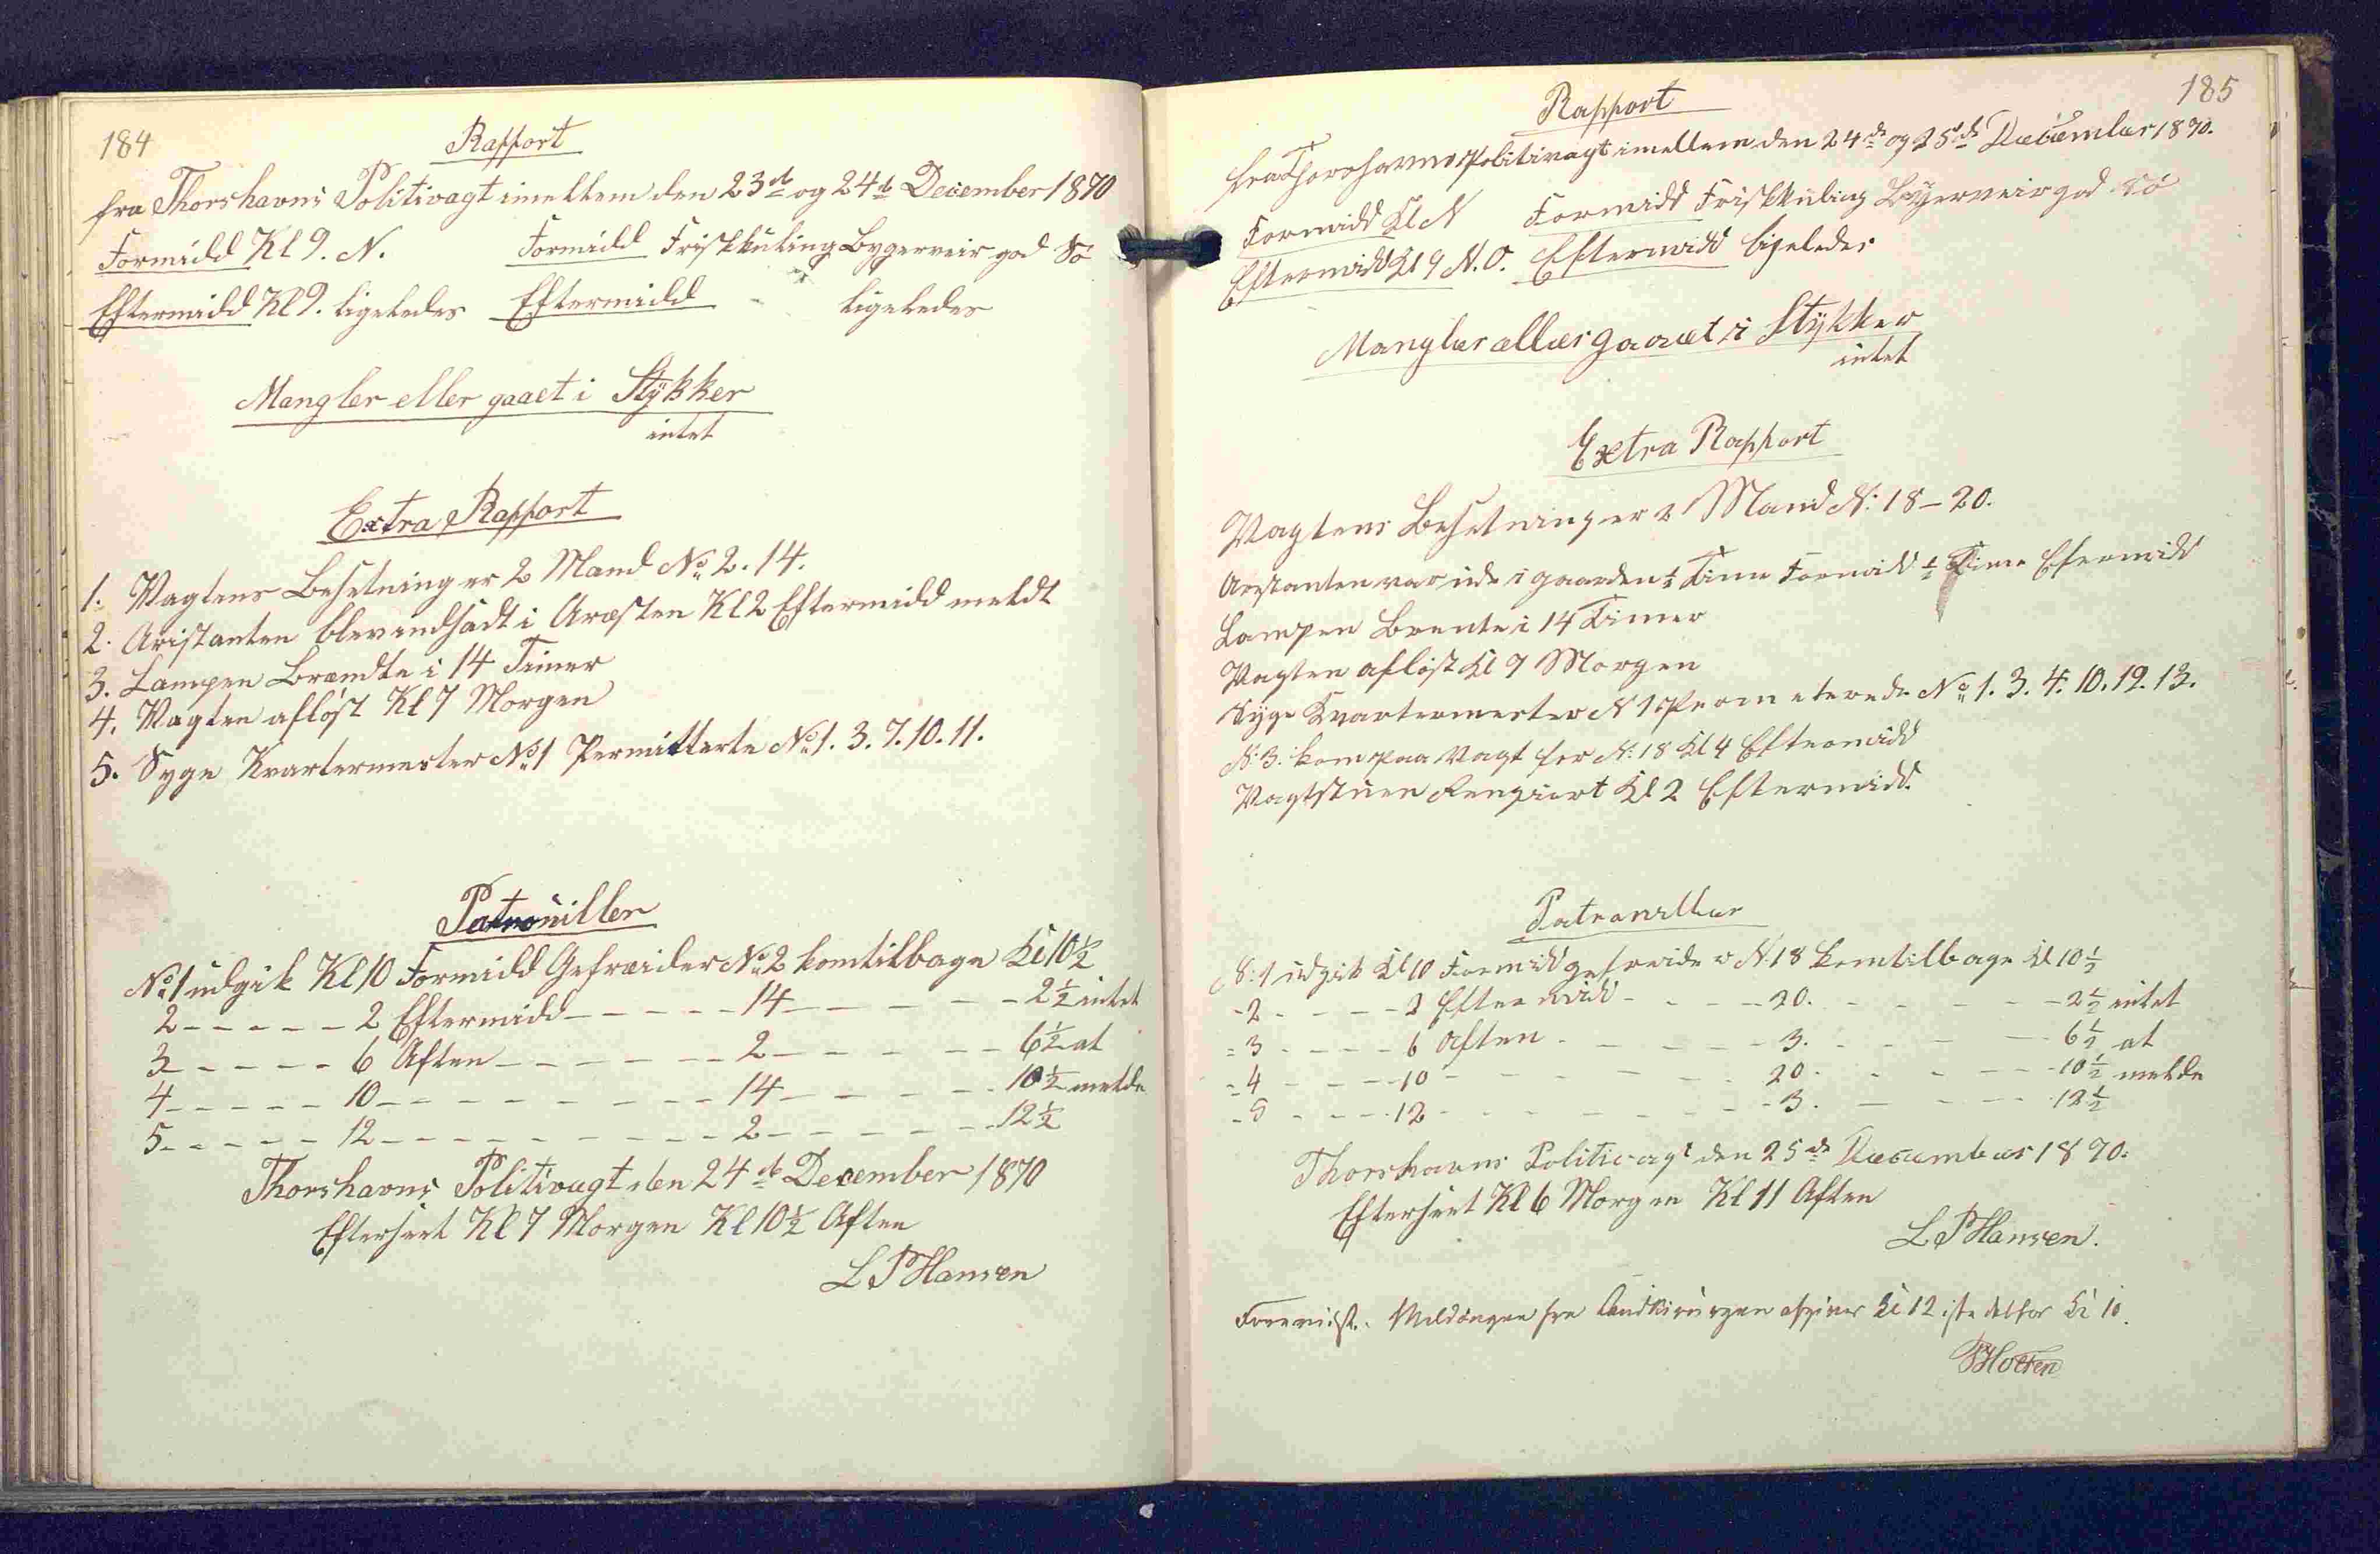 184
Rapport
fra Thorshavns Politivagt imellem den 23de og 24de December 1870
Formidd Kl 9. N. Formidd Friskkuling Bygerveir god Sö
Eftermidd Kl 9. ligeledes Eftermidd - ligeledes
Mangler eller gaaet i Stÿkker
intet
Extra Rapport
1. Vagtens Besetning er 2 Mand No 2. 14.
2. Aristanten blev indsadt i Aræsten Kl 2 Eftermidd meldt
3. Lampen Brændte i 14 Timer
4. Vagten afløst Kl 7 Morgen
5. Syge Kvartermester No 1 Permitterte No 1. 3. 7. 10. 11.
Patrouiller
No 1 udgik Kl 10 Formidd Gefreider No 2 kom tilbage Kl 10½
2 - - - - - 2 Eftermidd - - - - - 14 - - - - - 2½ intet
3 - - - - - 6 Aften - - - - - - 2 - - - - - 6½ at
4 - - - - - 10 - - - - - - - - 14 - - - - - 10½ melde
5 - - - - - 12 - - - - - - - - 2 - - - - - 12½
Thorshavns Politivagt den 24de December 1870
Efterseet Kl 7 Morgen Kl 10½ Aften
L P Hansen
185
Rapport
fra Thorshavns Politivagt imellem den 24de og 25de December 1870.
Formidd Kl N Formidd Friskkuling Bÿgerveir god Sö
Eftermidd Kl 9 N.O. Eftermidd ligeledes
Mangler eller gaaet i Stÿkker
intet
Extra Rapport
Vagtens Besetning er 2 Mand N: 18 - 20.
Arestanten var ude i gaarden ½ Time Formidd ½ Time Efermidd
Lampen Brente i 14 Timer
Vagten afløst Kl 7 Morgen
Sÿge Kvartermester N 1 No 1. 3. 4. 10. 12. 13.
N: 3: kom paa Vagt for N: 18 Kl 4 Eftermidd
Vagtstuen Rengiort Kl 2 Eftermidd.
Patrouiller
N: 1 udgik Kl 10 Formidd gefreider N: 18 kom tilbage Kl 10½
- 2 - - - - 2 Eftermidd - - - - 20. - - - - - 2½ intet
= 3 - - - - 6 Aften - - - - - 3. - - - - 6½ at
- 4 - - - - 10 - - - - - - - 20. - - - - - 10½ melde
- 5 - - - - 12 - - - - - - - 3. - - - - 12½
Thorshavns Politivagt den 25de December 1870.
Efterseet Kl 6 Morgen Kl 11 Aften
L P Hansen.
Meldingen fra Landkirurgen Kl 12 istedetfor Kl 10.
HHolten